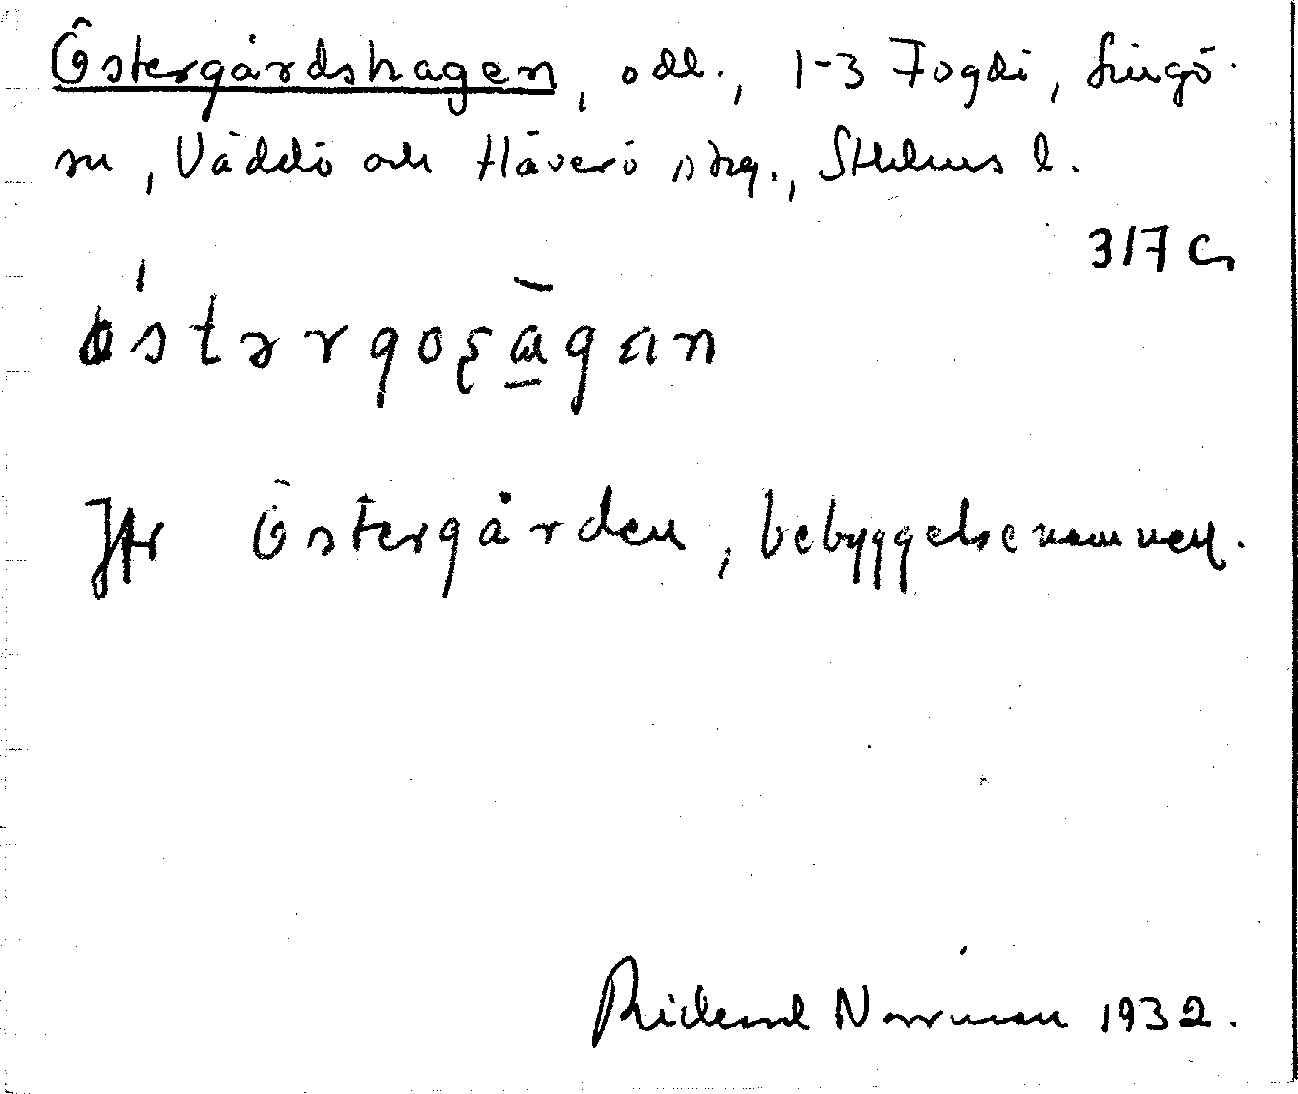 Östergårdshagen, odl., 1-3 Fogdö, Singö
sn, Väddö och Häverö skg., Sthlms l.
317 C
östərgoʂāgan
Jfr Östergården, bebyggelsenamnen.
Rickard Norrman 1932.